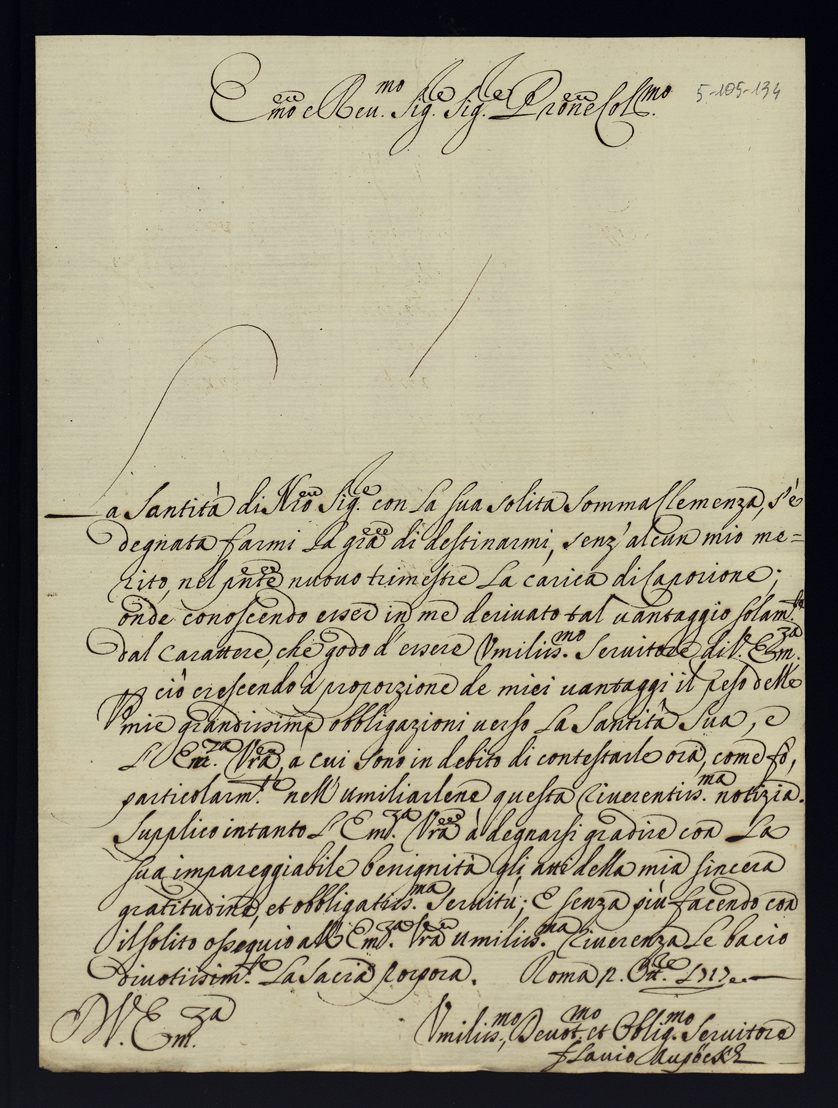 Em̃o e Reu.mo Sig.re Sig.re P̃rone Col.mo
5-105-134
La Santità di Ñro Sig.re con la sua solita somma Clemenza, s'è
degnata farmi la gr̃a di destinarmi, senz'alcun mio me=
rito, nel pñte nuouo trimestre la carica di Caporione;
onde conoscendo esser in me deriuato tal uantaggio solam.te
dal Carattere, che godo d'essere Vmiliss.mo Seruitore di V. Em.za
P ciò crescendo à proporzione de miei uantaggi il peso delle
mie grandissime obbligazioni uerso la Santità Sua, e
l'Em.za Vr̃a, à cui sono in debito di contestarle ora, come fò,
particolarm.te nell'umiliarlene questa riuerentiss.ma notizia.
Supplico intanto l'Em.za Vr̃a à degnarsi gradire con la
sua impareggiabile benignità gli atti della mia sincera
gratitudine, et obbligatiss.ma Seruitù; E senza più facendo con
il solito ossequio all'Em.za Vr̃a umiliss.ma riuerenza le bacio
diuotissim.te la Sacra Porpora. Roma
D. V. Em.za
Vmiliss.mo, Deuot.mo et Oblig.mo Seruitore
Flauio